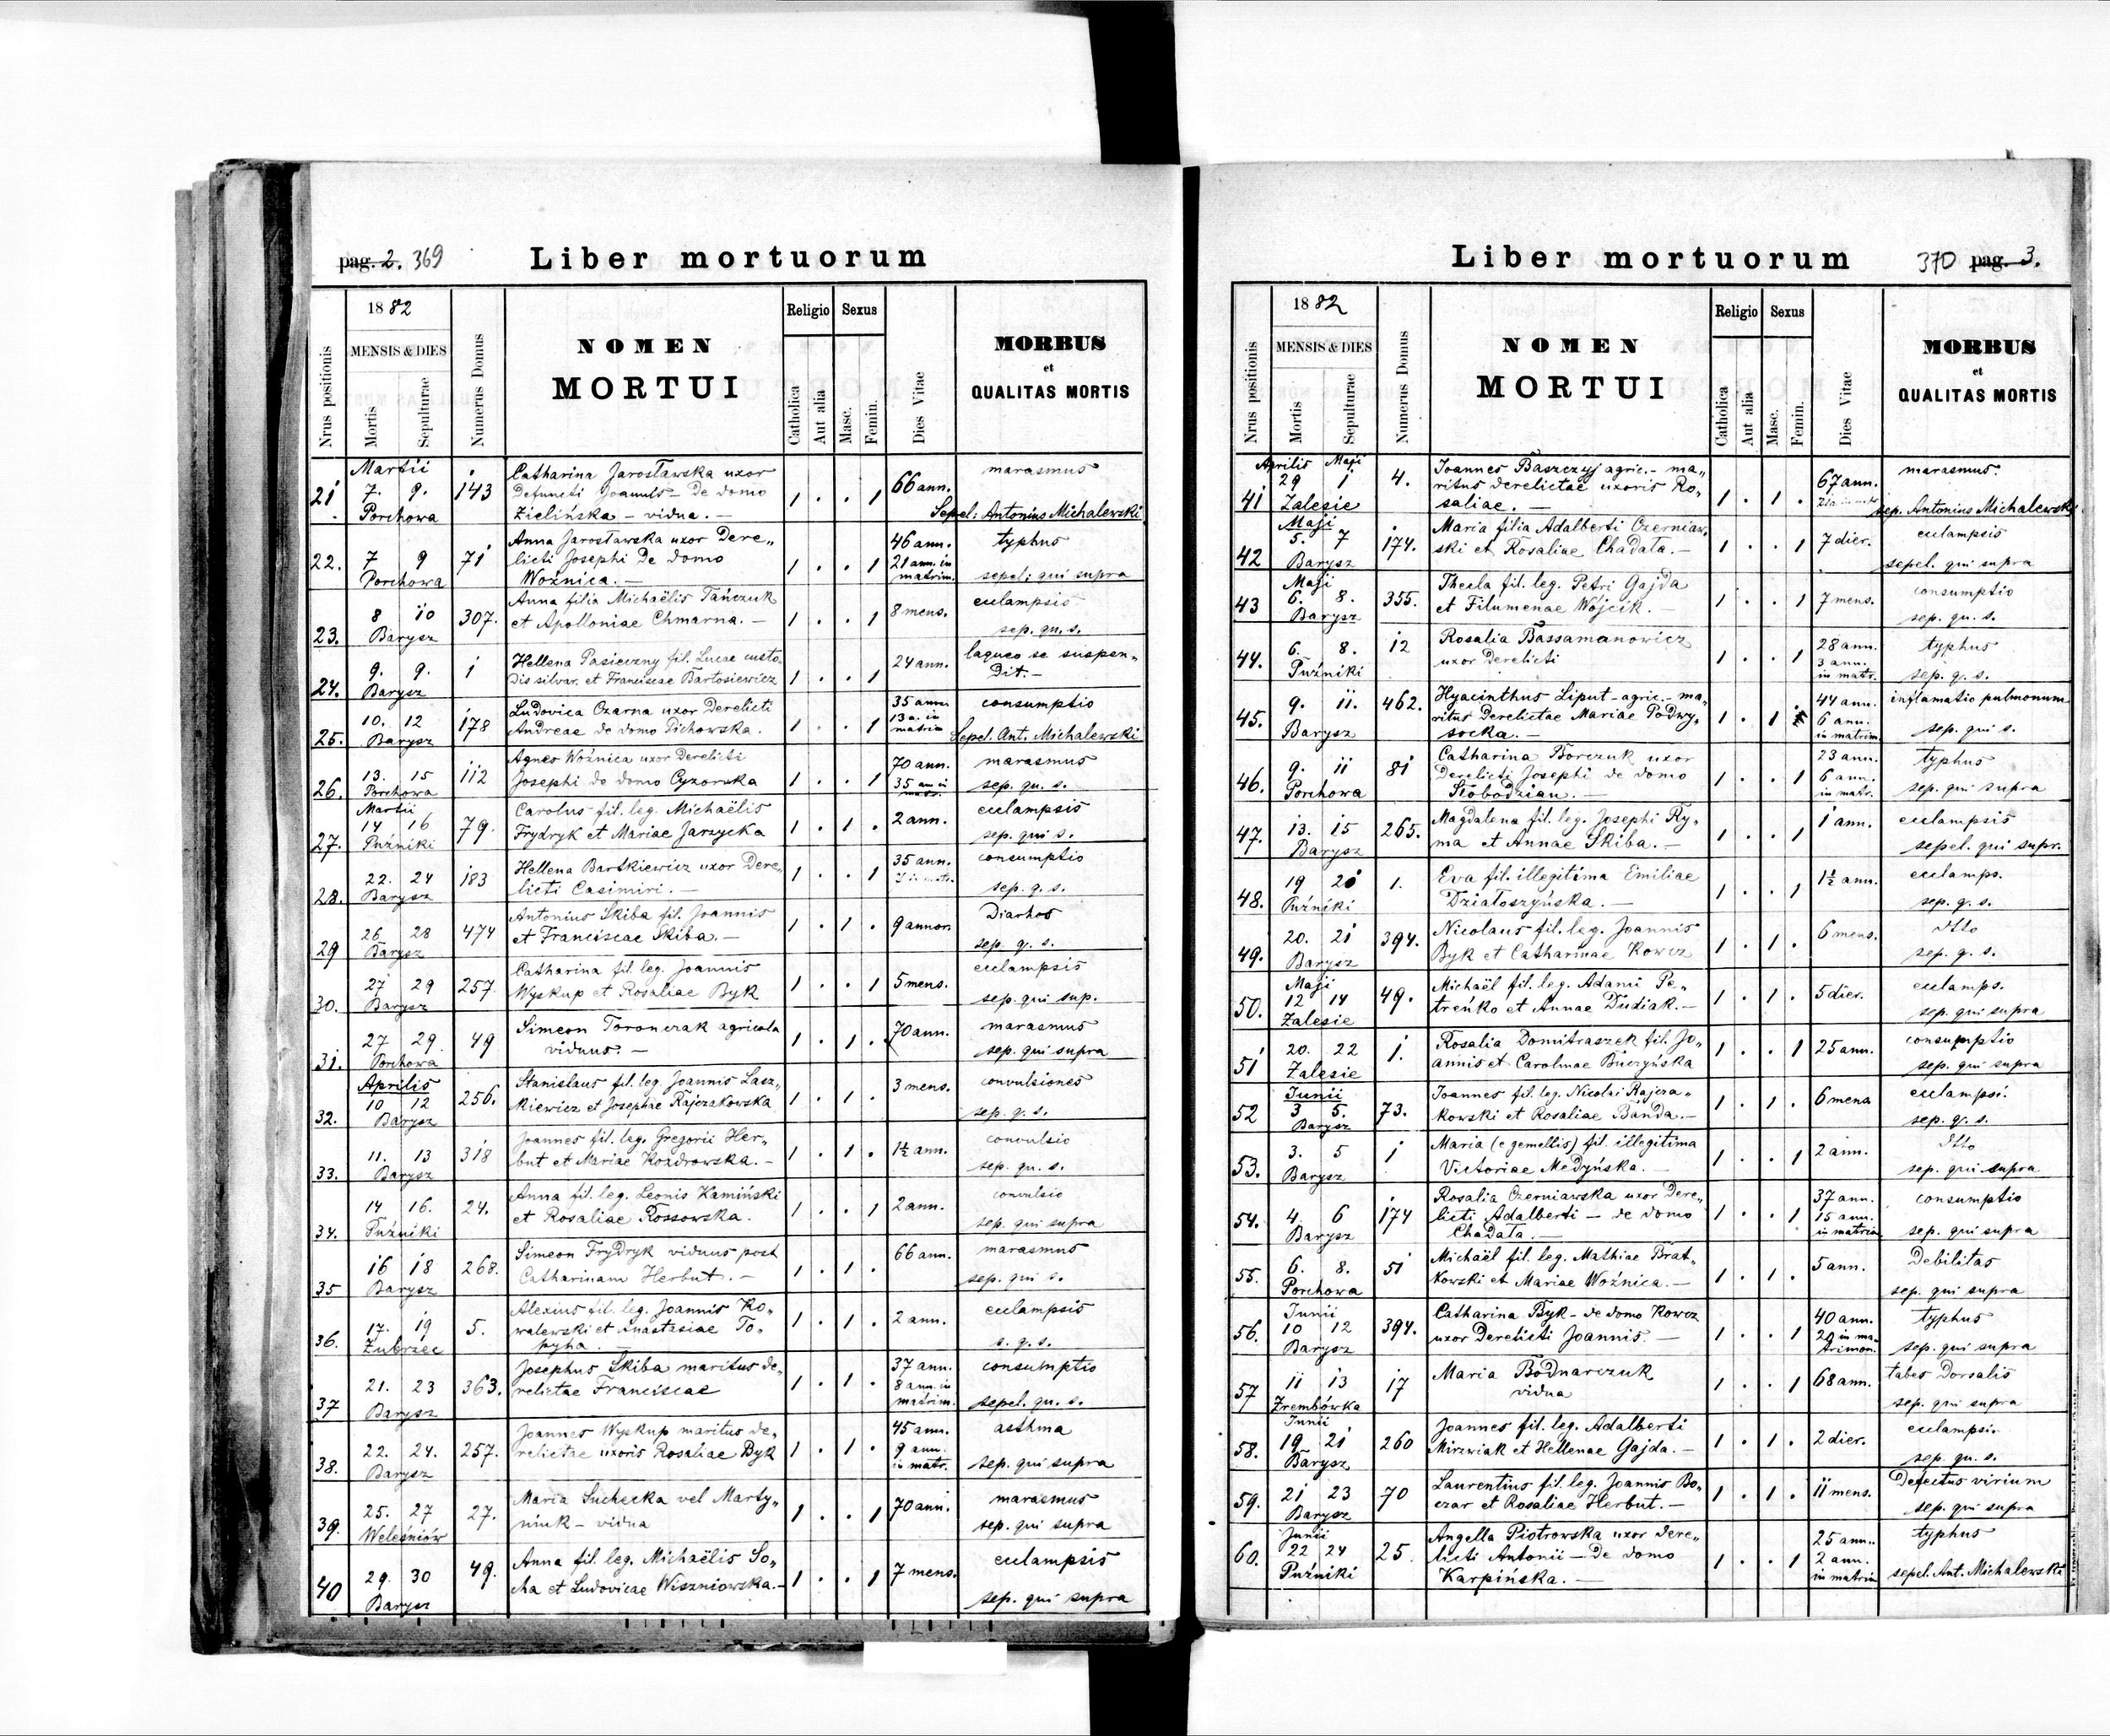 pag. 2. 369
Liber mortuorum
1882
MENSIS & DIES
Nrus positionis
Mortis
Sepulturae
Numerus Domus
NOMEN
MORTUI
Religio
Catholica
Aut alia
Sexus
Masc.
Femin.
Dies Vitae
MORBUS
et
QUALITAS MORTIS
Martii
21 7. 9. 143 Catharina Jarosławska uxor 1 . . 1 66 ann. marasmus
Defuncti Joannis – de domo
Porchowa Zielińska – vidua. – Sepel: Antonius Michalewski
22. 7 9 71 Anna Jarosławska uxor dere„ 1 . . 1 46 ann. typhus
licti Josephi de domo 21 ann. in
Porchowa Woźnica. – matrim. sepel: qui supra
23. 8 10 307. Anna filia Michaëlis Tańczuk 1 . . 1 8 mens. eclampsis
Barysz et Apolloniae Chmarna. – sep. qu. s.
24. 9. 9. 1 Hellena Pasieczny fil. Lucae custo„ 1 . . 1 24 ann. laqueo se suspen„
Barysz dis silvar. et Franciscae Bartosiewicz dit. –
25. 10. 12 178 Ludovica Czarna uxor derelicti 1 . . 1 35 ann. consumptio
13 a. in
Barysz Andreae de domo Pichowska. matrim Sepel. Ant. Michalewski
26. 13. 15 112 Agnes Woźnica uxor derelicti 1 . . 1 70 ann. marasmus
Porchowa Josephi de domo Cyzorska 35 an in matr. sep. qu. s.
Martii
27. 14 16 79. Carolus fil. leg. Michaëlis 1 . 1 . 2 ann. eclampsis
Puźniki Frydryk et Mariae Jarzycka sep. qui s.
28. 22. 24 183 Hellena Bartkiewicz uxor dere„ 1 . . 1 35 ann. consumptio
Barysz licti Casimiri. – sep. q. s.
29 26 28 474 Antonius Skiba fil. Joannis 1 . 1 . 9 annor. diarhos
Barysz et Franciscae Skiba. – sep. q. s.
30. 27 29 257. Catharina fil. leg. Joannis 1 . . 1 5 mens. eclampsis
Barysz Wyskup et Rosaliae Byk sep. qui sup.
31. 27 29. 49 Simeon Toronczak agricola 1 . 1 . 70 ann. marasmus
Porchowa viduus. – sep. qui supra
Aprilis
32. 10 12 256. Stanislaus fil. leg. Joannis Lasz„ 1 . 1 . 3 mens. convulsiones
Barysz kiewicz et Josephae Rajczakowska sep. q. s.
33. 11. 13 318 Joannes fil. leg. Gregorii Her„ 1 . 1 . 1½ ann. convulsio
Barysz but et Mariae Kozdrowska. – sep. qu. s.
34. 14 16. 24. Anna fil. leg. Leonis Kamiński 1 . . 1 2 ann. convulsio
Puźniki et Rosaliae Rossowska. sep. qui supra
35 16 18 268. Simeon Frydryk viduus post 1 . 1 . 66 ann. marasmus
Barysz Catharinam Herbut. – sep. qui s.
36. 17. 19 5. Alexius fil. leg. Joannis Ko„ 1 . 1 . 2 ann. eclampsis
Zubrzec walewski et Anastasiae To„
pyha. – s. q. s.
37 21. 23 363. Josephus Skiba maritus de„ 1 . 1 . 37 ann. consumptio
relictae Franciscae 8 ann. in
Barysz matrim. sepel. qu. s.
38. 22. 24. 257. Joannes Wyskup maritus de„ 1 . 1 . 45 ann. asthma
relictae uxoris Rosaliae Byk 9 ann.
Barysz in matr. sep. qui supra
39. 25. 27 27. Maria Suchecka vel Marty„ 1 . . 1 70 ann. marasmus
Weleśniów niuk – vidua sep. qui supra
40 29. 30 49. Anna fil. leg. Michaëlis So„ 1 . . 1 7 mens. eclampsis
Barysz cha et Ludovicae Wiszniowska. – sep. qui supra
Liber mortuorum
370 pag. 3.
1882
MENSIS & DIES
Nrus positionis
Mortis
Sepulturae
Numerus Domus
NOMEN
MORTUI
Religio
Catholica
Aut alia
Sexus
Masc.
Femin.
Dies Vitae
MORBUS
et
QUALITAS MORTIS
Aprilis Maji
41 29 1 4. Joannes Baszczyj agric. – ma„ 1 . 1 . 67 ann. marasmus.
ritus derelictae uxoris Ro„
Zalesie saliae. – sep. Antonius Michalewski
Maji
42 5. 7 174. Maria filia Adalberti Czerniaw„ 1 . . 1 7 dier. eclampsis
Barysz ski et Rosaliae Chadata. – sepel. qui supra
Maji
43 6. 8. 355. Thecla fil. leg. Petri Gajda 1 . . 1 7 mens. consumptio
Barysz et Filumenae Wójcik. – sep. qu. s.
44. 6. 8. 12 Rosalia Bassamanowicz 1 . . 1 28 ann. typhus
uxor derelicti 3 ann.
Puźniki in matr. sep. q. s.
45. 9. 11. 462. Hyacinthus Liput – agric. – ma„ 1 . 1 44 ann. inflamatio pulmonum
ritus derelictae Mariae Podwy„ 6 ann.
Barysz socka. – in matrim. sep. qui s.
46. 9. 11 81 Catharina Borczuk uxor 1 . . 1 23 ann. typhus
derelicti Josephi de domo 6 ann.
Porchowa Słobodzian. – in matr. sep. qui supra
47. 13. 15 265. Magdalena fil. leg. Josephi Ry„ 1 . . 1 1 ann. eclampsis
Barysz ma et Annae Skiba. – sepel. qui supr.
48. 19 20 1. Eva fil. illegitima Emiliae 1 . . 1 1½ ann. eclamps.
Puźniki Działoszyńska. – sep. q. s.
49. 20. 21 394. Nicolaus fil. leg. Joannis 1 . 1 . 6 mens. dtto
Barysz Byk et Catharinae Kowcz sep. q. s.
Maji
50. 12 14 49. Michaël fil. leg. Adami Pe„ 1 . 1 . 5 dier. eclamps.
Zalesie treńko et Annae Dudiak. – sep. qui supra
51 20. 22 1. Rosalia Domitraszek fil. Jo„ 1 . . 1 25 ann. consumptio
Zalesie annis et Carolinae Buczyńska sep. qui supra
Junii
52 3 5. 73. Joannes fil. leg. Nicolai Rajcza„ 1 . 1 . 6 mens eclampsi.
Barysz kowski et Rosaliae Banda. – sep. q. s.
53. 3. 5 1 Maria (e gemellis) fil. illegitima 1 . . 1 2 ann. dtto
Barysz Victoriae Medyńska. – sep. qui supra
54. 4. 6 174 Rosalia Czerniawska uxor dere„ 1 . . 1 37 ann. consumptio
licti Adalberti – de domo 15 ann.
Barysz Chadata. – in matrim sep. qui supra
55. 6. 8. 51 Michaël fil. leg. Mathiae Brat„ 1 . 1 . 5 ann. debilitas
Porchowa kowski et Mariae Woźnica. – sep. qui supra
Junii
56. 10 12 394. Catharina Byk – de domo Kowcz 1 . . 1 40 ann. typhus
uxor derelicti Joannis. – 20 in ma„
Barysz trimon. sep. qui supra
57 11 13 17 Maria Bodnarczuk 1 . . 1 68 ann. tabes dorsalis
Zrembówka vidua sep. qui supra
Junii
58. 19 21 260 Joannes fil. leg. Adalberti 1 . 1 . 2 dier. eclampsi.
Barysz Mirzwiak et Hellenae Gajda. – sep. qu. s.
59. 21 23 70 Laurentius fil. leg. Joannis Bo„ 1 . 1 . 11 mens. defectus virium
Barysz czar et Rosaliae Herbut. – sep. qui supra
Junii
60. 22 24 25. Angella Piotrowska uxor dere„ 1 . . 1 25 ann. typhus
licti Antonii – de domo 2 ann.
Puźniki Karpińska. – in matrim sepel. Ant. Michalewski